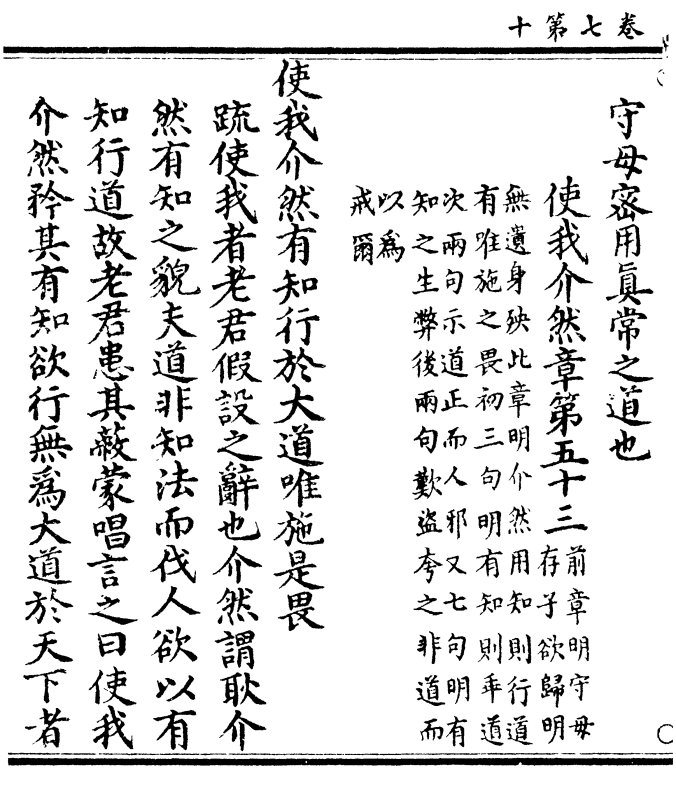 卷七第十
守母密用眞常之道也
使我介然章第五十三
前章明守母
存子欲歸明
無遺身殃此章明介然用知則行道
有唯施之畏初三句明有知則乖道
次兩句示道正而人邪又七句明有
知之生弊後兩句歎盜夸之非道而
以爲
戒爾
使我介然有知行於大道唯施是畏
䟽使我者老君假設之辭也介然謂耿介
然有知之貌夫道非知法而伐人欲以有
知行道故老君患其蔽蒙唱言之曰使我
介然矜其有知欲行無爲大道於天下者